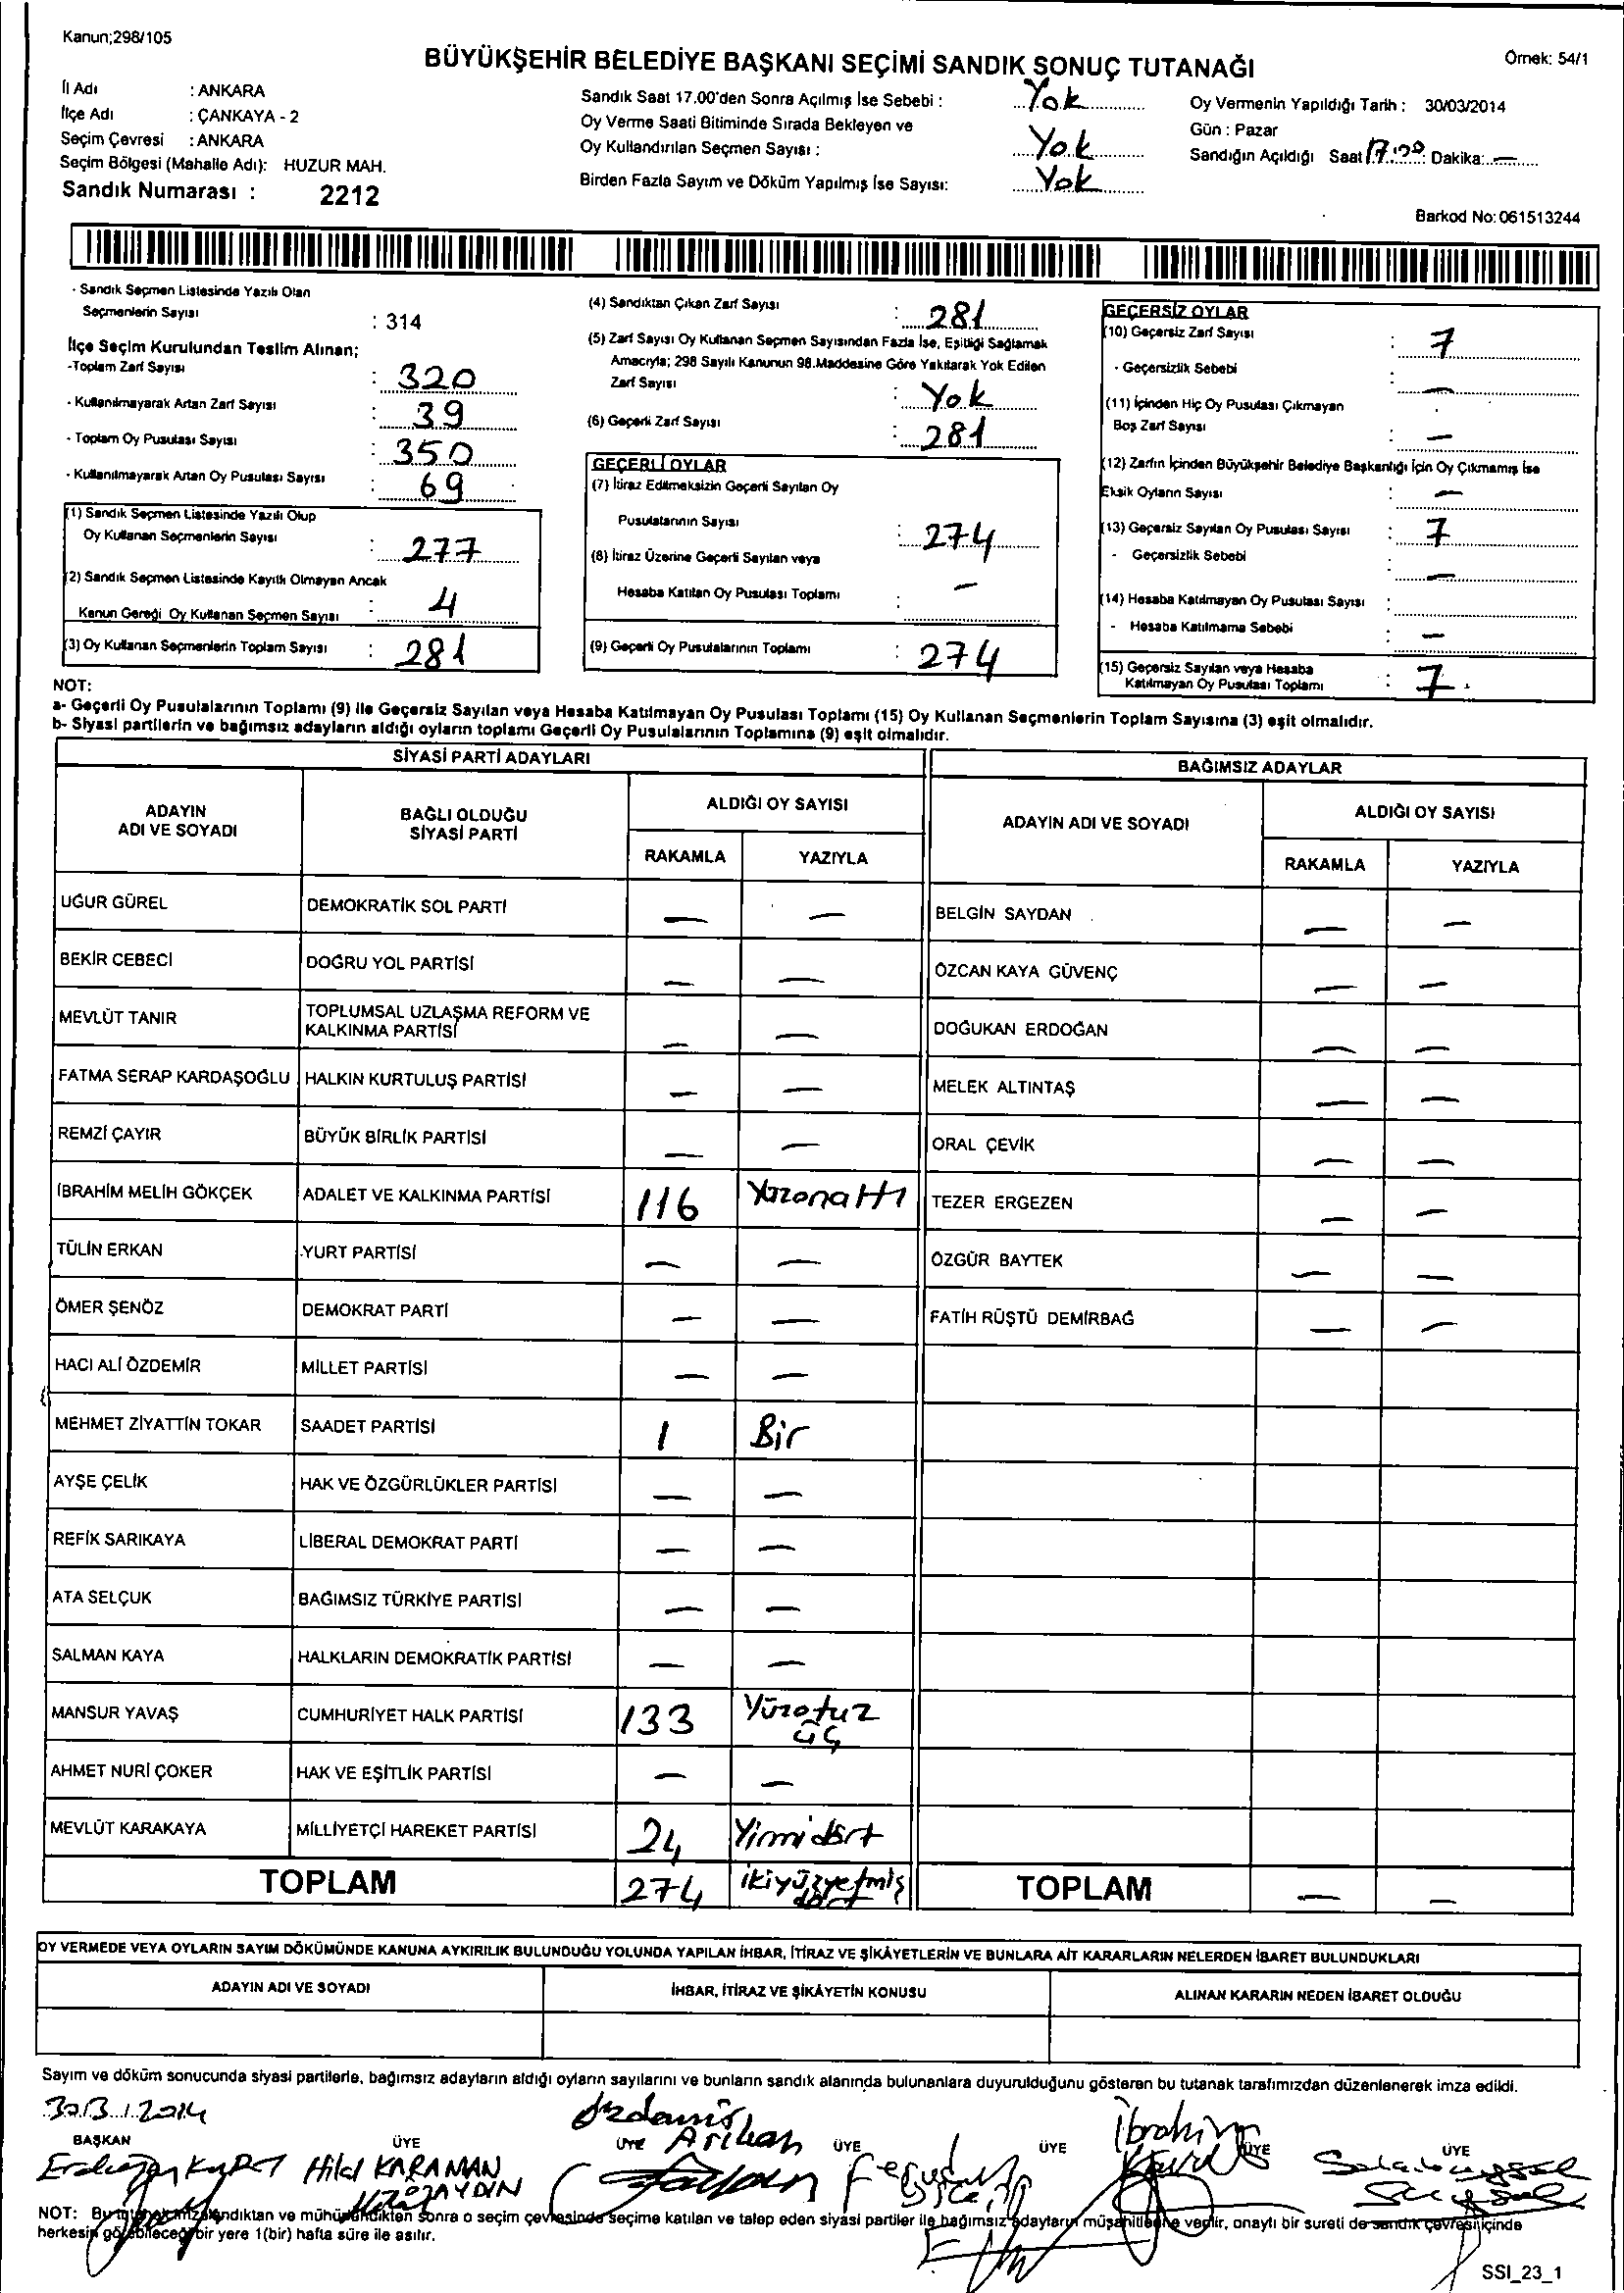 Kanun;298/105
BÜYÜKŞEHİR BELEDİYE BAŞKANI SEÇİMİ SANDIK SONUÇ TUTANAĞI
Örnek: 54/1
İl Adı : ANKARA
İlçe Adı : ÇANKAYA - 2
Seçim Çevresi : ANKARA
Seçim Bölgesi (Mahalle Adı): HUZUR MAH.
Sandık Numarası : 2212
Sandık Saat 17.00'den Sonra Açılmış İse Sebebi : Yok
Oy Verme Saati Bitiminde Sırada Bekleyen ve
Oy Kullandırılan Seçmen Sayısı : Yok
Birden Fazla Sayım ve Döküm Yapılmış İse Sayısı: Yok
Oy Vermenin Yapıldığı Tarih : 30/03/2014
Gün : Pazar
Sandığın Açıldığı Saat 17:00 Dakika: —
Barkod No: 061513244
- Sandık Seçmen Listesinde Yazılı Olan
Seçmenlerin Sayısı : 314
İlçe Seçim Kurulundan Teslim Alınan;
-Toplam Zarf Sayısı : 320
- Kullanılmayarak Artan Zarf Sayısı : 39
- Toplam Oy Pusulası Sayısı : 350
- Kullanılmayarak Artan Oy Pusulası Sayısı : 69
(1) Sandık Seçmen Listesinde Yazılı Olup
Oy Kullanan Seçmenlerin Sayısı : 277
(2) Sandık Seçmen Listesinde Kayıtlı Olmayan Ancak
Kanun Gereği Oy Kullanan Seçmen Sayısı : 4
(3) Oy Kullanan Seçmenlerin Toplam Sayısı : 281
(4) Sandıktan Çıkan Zarf Sayısı : 281
(5) Zarf Sayısı Oy Kullanan Seçmen Sayısından Fazla İse, Eşitliği Sağlamak
Amacıyla; 298 Sayılı Kanunun 98.Maddesine Göre Yakılarak Yok Edilen
Zarf Sayısı : Yok
(6) Geçerli Zarf Sayısı : 281
GEÇERLİ OYLAR
(7) İtiraz Edilmeksizin Geçerli Sayılan Oy
Pusulalarının Sayısı : 274
(8) İtiraz Üzerine Geçerli Sayılan veya
Hesaba Katılan Oy Pusulası Toplamı : —
(9) Geçerli Oy Pusulalarının Toplamı : 274
GEÇERSİZ OYLAR
(10) Geçersiz Zarf Sayısı : 7
- Geçersizlik Sebebi : —
(11) İçinden Hiç Oy Pusulası Çıkmayan
Boş Zarf Sayısı : —
(12) Zarfın İçinden Büyükşehir Belediye Başkanlığı İçin Oy Çıkmamış İse
Eksik Oyların Sayısı : —
(13) Geçersiz Sayılan Oy Pusulası Sayısı : 7
- Geçersizlik Sebebi : —
(14) Hesaba Katılmayan Oy Pusulası Sayısı :
- Hesaba Katılmama Sebebi : —
(15) Geçersiz Sayılan veya Hesaba
Katılmayan Oy Pusulası Toplamı : 7
NOT:
a- Geçerli Oy Pusulalarının Toplamı (9) ile Geçersiz Sayılan veya Hesaba Katılmayan Oy Pusulası Toplamı (15) Oy Kullanan Seçmenlerin Toplam Sayısına (3) eşit olmalıdır.
b- Siyasi partilerin ve bağımsız adayların aldığı oyların toplamı Geçerli Oy Pusulalarının Toplamına (9) eşit olmalıdır.
SİYASİ PARTİ ADAYLARI
ADAYIN ADI VE SOYADI
BAĞLI OLDUĞU SİYASİ PARTİ
ALDIĞI OY SAYISI
RAKAMLA YAZIYLA
UĞUR GÜREL DEMOKRATİK SOL PARTİ — —
BEKİR CEBECİ DOĞRU YOL PARTİSİ — —
MEVLÜT TANIR TOPLUMSAL UZLAŞMA REFORM VE KALKINMA PARTİSİ — —
FATMA SERAP KARDAŞOĞLU HALKIN KURTULUŞ PARTİSİ — —
REMZİ ÇAYIR BÜYÜK BİRLİK PARTİSİ — —
İBRAHİM MELİH GÖKÇEK ADALET VE KALKINMA PARTİSİ 116 Yüzonaltı
TÜLİN ERKAN YURT PARTİSİ — —
ÖMER ŞENÖZ DEMOKRAT PARTİ — —
HACI ALİ ÖZDEMİR MİLLET PARTİSİ — —
MEHMET ZİYATTİN TOKAR SAADET PARTİSİ 1 Bir
AYŞE ÇELİK HAK VE ÖZGÜRLÜKLER PARTİSİ — —
REFİK SARIKAYA LİBERAL DEMOKRAT PARTİ — —
ATA SELÇUK BAĞIMSIZ TÜRKİYE PARTİSİ — —
SALMAN KAYA HALKLARIN DEMOKRATİK PARTİSİ — —
MANSUR YAVAŞ CUMHURİYET HALK PARTİSİ 133 Yüzotuz üç
AHMET NURİ ÇOKER HAK VE EŞİTLİK PARTİSİ — —
MEVLÜT KARAKAYA MİLLİYETÇİ HAREKET PARTİSİ 24 Yirmidört
TOPLAM 274 ikiyüzyetmiş dört
BAĞIMSIZ ADAYLAR
ADAYIN ADI VE SOYADI
ALDIĞI OY SAYISI
RAKAMLA YAZIYLA
BELGİN SAYDAN — —
ÖZCAN KAYA GÜVENÇ — —
DOĞUKAN ERDOĞAN — —
MELEK ALTINTAŞ — —
ORAL ÇEVİK — —
TEZER ERGEZEN — —
ÖZGÜR BAYTEK — —
FATİH RÜŞTÜ DEMİRBAĞ — —
TOPLAM — —
OY VERMEDE VEYA OYLARIN SAYIM DÖKÜMÜNDE KANUNA AYKIRILIK BULUNDUĞU YOLUNDA YAPILAN İHBAR, İTİRAZ VE ŞİKÂYETLERİN VE BUNLARA AİT KARARLARIN NELERDEN İBARET BULUNDUKLARI
ADAYIN ADI VE SOYADI İHBAR, İTİRAZ VE ŞİKÂYETİN KONUSU ALINAN KARARIN NEDEN İBARET OLDUĞU
Sayım ve döküm sonucunda siyasi partilerle, bağımsız adayların aldığı oyların sayılarını ve bunların sandık alanında bulunanlara duyurulduğunu gösteren bu tutanak tarafımızdan düzenlenerek imza edildi.
30/3/2014
BAŞKAN ÜYE ÜYE ÜYE ÜYE ÜYE ÜYE
Hilal KARAMAN
İbrahim
NOT: Bu tutanak imzalandıktan ve mühürlendikten sonra o seçim çevresinde seçime katılan ve talep eden siyasi partiler ile bağımsız adayların müşahitlerine verilir, onaylı bir sureti de sandık çevresi içinde
herkesin görebileceği bir yere 1(bir) hafta süre ile asılır.
SSI_23_1